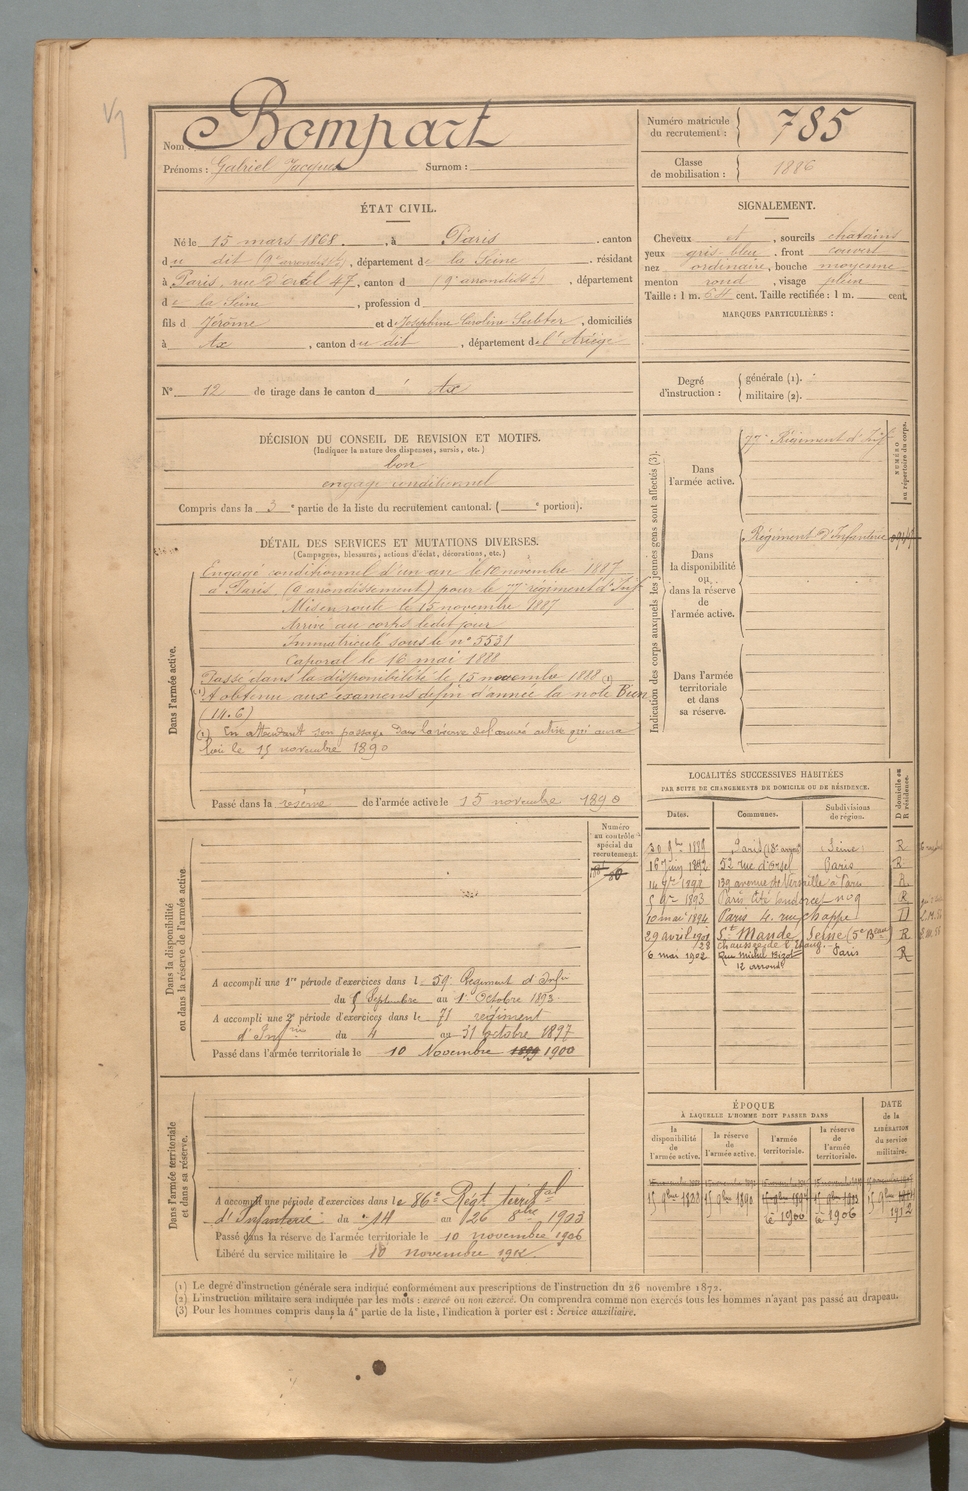 Nom : Bompart
Prénoms : Gabriel Jacques Surnom :
Numéro matricule du recrutement : 785
Classe de mobilisation : 1886
ÉTAT CIVIL.
Né le 15 mars 1868, à Paris, canton
du dit (9e arrondisst), département de la Seine, résidant
à Paris, rue d'orsel 47, canton d (9e arrondisst), département
de la Seine, profession d
fils d Jérôme et de Joséphine Caroline, domiciliés
à Ax, canton du dit, département de l'Ariège
N° 12 de tirage dans le canton d' Ax
SIGNALEMENT.
Cheveux et, sourcils châtains
yeux gris bleu, front couvert
nez ordinaire, bouche moyenne
menton rond, visage plein
Taille : 1 m. cent. Taille rectifiée : 1 m. cent.
MARQUES PARTICULIÈRES :
Degré d'instruction : générale (1). militaire (2).
DÉCISION DU CONSEIL DE REVISION ET MOTIFS.
(Indiquer la nature des dispenses, sursis, etc.)
bon
engagé conditionnel
Compris dans la 3e partie de la liste du recrutement cantonal. ( e portion).
DÉTAIL DES SERVICES ET MUTATIONS DIVERSES.
(Campagnes, blessures, actions d'éclat, décorations, etc.)
Dans l'armée active.
Engagé conditionnel d'un an le 10 novembre 1887
à Paris (9e arrondissement) pour le 77e régiment d'Inf
Mis en route le 15 novembre 1887
Arrivé au corps ledit jour
Immatriculé sous le n° 5531
Caporal le 16 mai 1888
Passé dans la disponibilité le 15 novembre 1888 (1)
A obtenu aux examens de fin d'année la note Bien
(14.6)
(1) En attendant son passage dans la réserve de l'armée active qui aura
lieu le 15 novembre 1890
Passé dans la réserve de l'armée active le 15 novembre 1890
Indication des corps auxquels les jeunes gens sont affectés (3).
NUMÉRO au répertoire du corps.
Dans l'armée active.
77e Régiment d'Inf
Dans la disponibilité ou dans la réserve de l'armée active.
Régiment d'Infanterie
Dans l'armée territoriale et dans sa réserve.
LOCALITÉS SUCCESSIVES HABITÉES
PAR SUITE DE CHANGEMENTS DE DOMICILE OU DE RÉSIDENCE.
Dates. Communes. Subdivisions de région. D domicile ou R résidence.
30 9bre 1889 Paris (18e arrondt) Seine R
16 Juin 1892 52 rue d'Orsel Paris R
14 7bre 1892 139 avenue de Versaille à Paris R
5 9re 1893 Paris cité R
10 mai 1894 Paris 4. rue Chappe D
29 avril 1901 St Mandé Seine (5e Beau) R
28 chaussée de l'Etang
6 mai 1902 Rue Michel Bizot Paris R
12 arrond
Dans la disponibilité ou dans la réserve de l'armée active.
Numéro au contrôle spécial du recrutement.
A accompli une 1re période d'exercices dans le 59e Régiment d'Infie
du 5 Septembre au 1er Octobre 1893
A accompli une 2e période d'exercices dans le 71 régiment
d'Infrie du 4 au 31 octobre 1897
Passé dans l'armée territoriale le 10 Novembre 1899 1900
ÉPOQUE
À LAQUELLE L'HOMME DOIT PASSER DANS
la disponibilité de l'armée active. la réserve de l'armée active. l'armée territoriale. la réserve de l'armée territoriale. DATE de la LIBÉRATION du service militaire.
15 9bre 1888 15 9bre 1890 15 9bre 1897 15 9bre 1903
le 1900 le 1906 1912
Dans l'armée territoriale et dans sa réserve.
A accompli une période d'exercices dans le 86e Régt territal
d'Infanterie du 14 au 26 8bre 1903
Passé dans la réserve de l'armée territoriale le 10 novembre 1906
Libéré du service militaire le 10 novembre 1912
(1) Le degré d'instruction générale sera indiqué conformément aux prescriptions de l'instruction du 26 novembre 1872.
(2) L'instruction militaire sera indiquée par les mots : exercé ou non exercé. On comprendra comme non exercés tous les hommes n'ayant pas passé au drapeau.
(3) Pour les hommes compris dans la 4e partie de la liste, l'indication à porter est : Service auxiliaire.